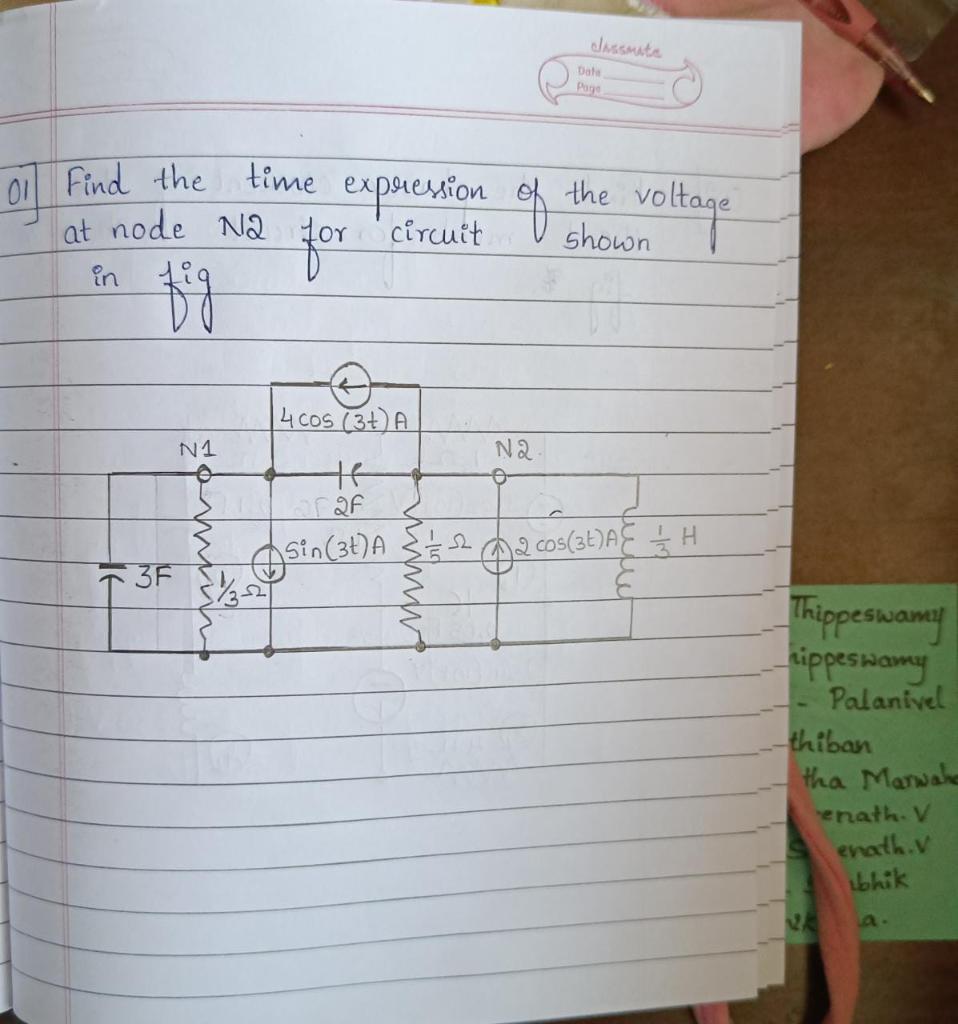 classmate
Date
Page
01] Find the time expression of the voltage
at node N2 for circuit shown
in fig
4 cos (3t) A
N1
N2
2F
3F
1/3 Ω
Sin(3t) A
1/5 Ω
2 cos(3t) A
1/3 H
Thippeswamy
ippeswamy
- Palanivel
thiban
tha Marwah
enath. V
enath. V
bhik
a.